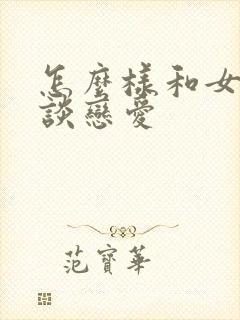 怎麼樣和女
談戀愛
范寶華